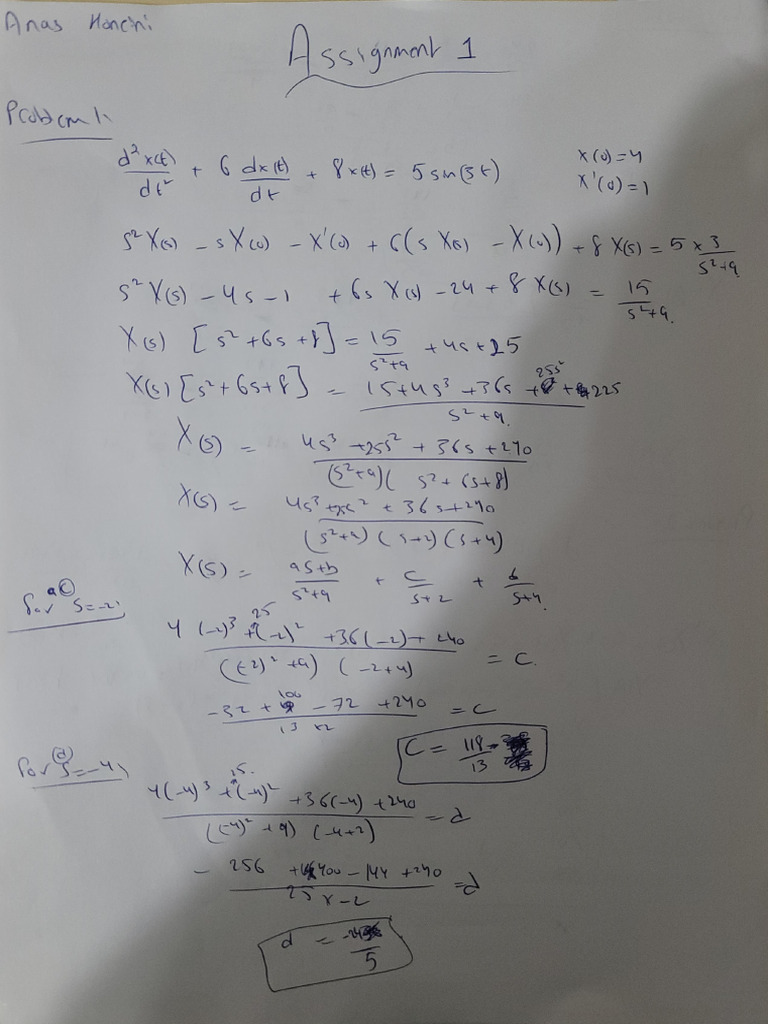 Anas Honcini
Assignment 1
Problem 1:
d²x(t)/dt² + 6 dx(t)/dt + 8x(t) = 5 sin(3t)
x(0)=4
x'(0)=1
s²X(s) - sX(0) - X'(0) + 6(s X(s) - X(0)) + 8 X(s) = 5 × 3/(s²+9)
s²X(s) - 4s - 1 + 6s X(s) - 24 + 8 X(s) = 15/(s²+9)
X(s) [s²+6s+8] = 15/(s²+9) + 4s + 25
X(s) [s²+6s+8] = (15+4s³+36s+25s²+225)/(s²+9)
X(s) = (4s³+25s²+36s+240)/((s²+9)(s²+6s+8))
X(s) = (4s³+25s²+36s+240)/((s²+9)(s+2)(s+4))
X(s) = (as+b)/(s²+9) + c/(s+2) + 6/(s+4)
for s=-2,
(4(-2)³+25(-2)²+36(-2)+240)/(((-2)²+9)(-2+4)) = C
(-32+100-72+240)/(13×2) = C
C = 118/13
for s=-4,
(4(-4)³+25(-4)²+36(-4)+240)/(((-4)²+9)(-4+2)) = d
(-256+400-144+240)/(25×-2) = d
d = -24/5